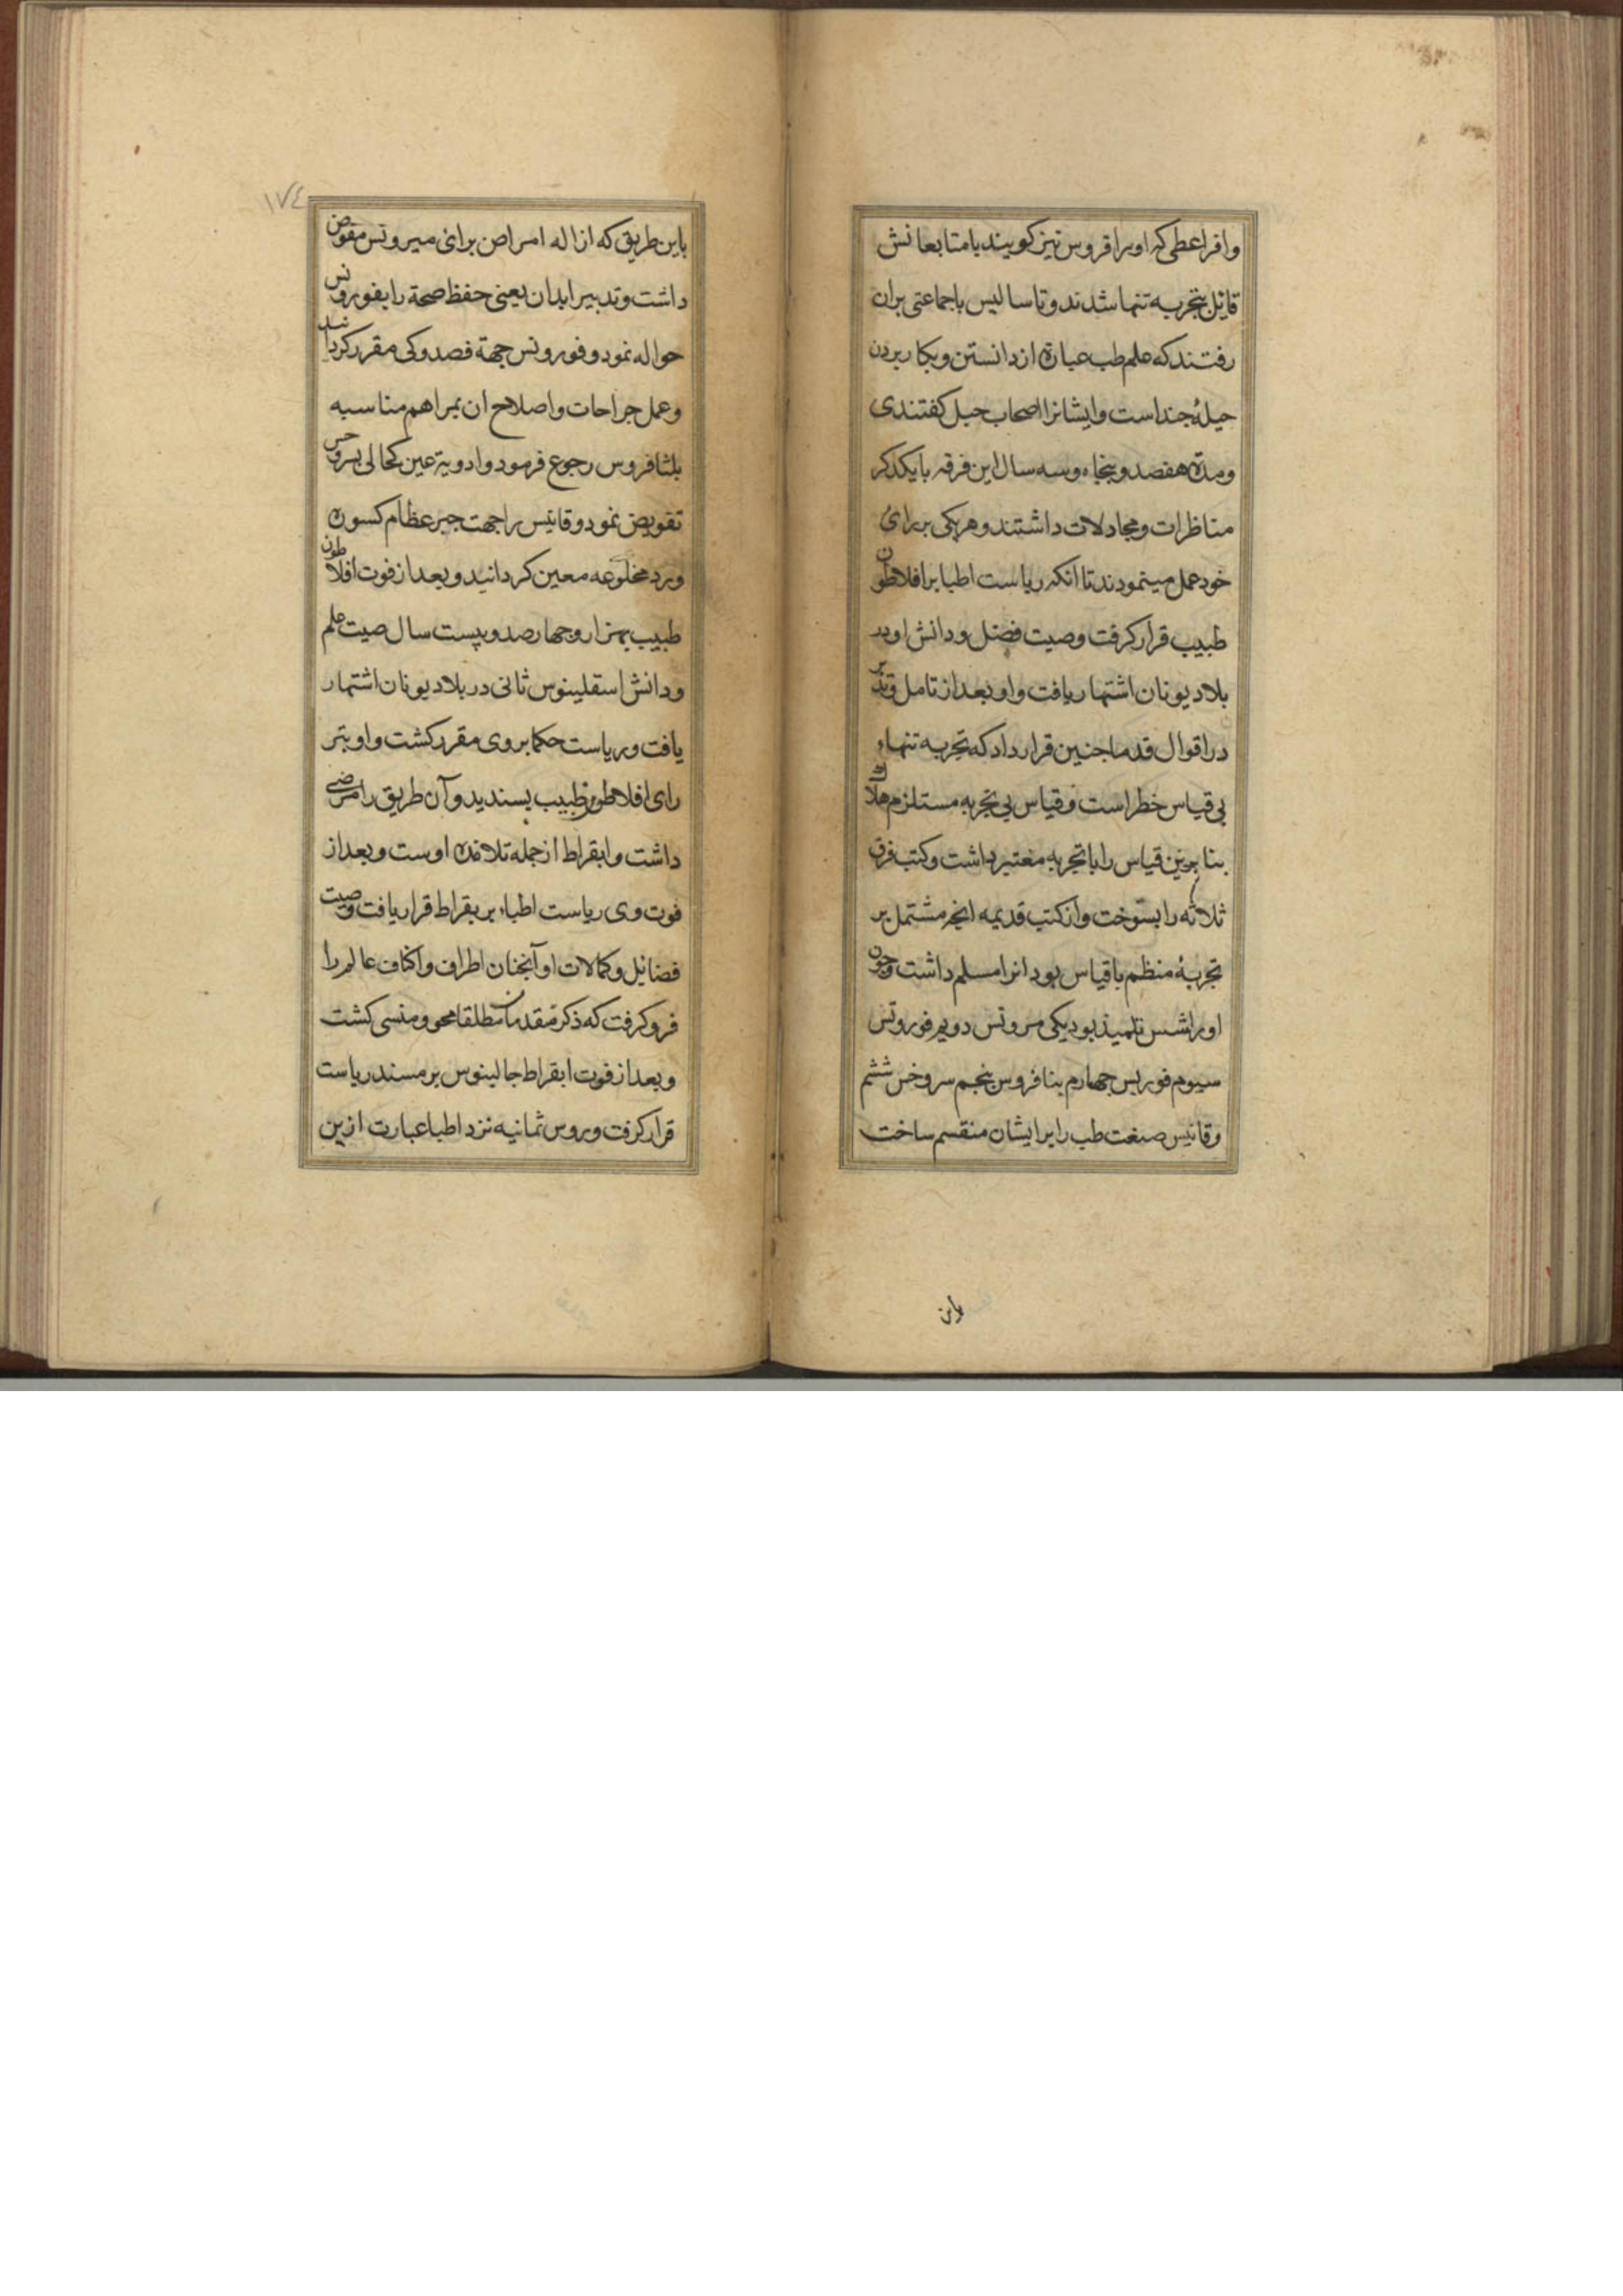 وافراعطی که اورا قروس نیز کویند با متابعانش
قایل بتجربه تنها شدند و تاسالیس با جماعتی بران
رفتند که علم طب عبارة از دانستن و بکار بردن
حیلهٔ جند است و ایشانرا اصحاب حیل کفتندی
ومدة هفصد و پنجاه و سه سال این فرقه با یکدکر
مناظرات و مجادلات داشتند و هریکی بر رای
خود عمل مینمودند تا انکه ریاست اطبا بر افلاطون
طبیب قرار کرفت وصیت فضل و دانش او در
بلاد یونان اشتهار یافت و او بعد از تامل و تدبر
در اقوال قدما جنین قرار داد که تجربه تنهاء
بی قیاس خطر است و قیاس بی تجربه مستلزم هلاک
بنا برین قیاس را با تجربه معتبر داشت و کتب فرق
ثلاثه را بسوخت و از کتب قدیمه انچه مشتمل بر
تجربهٔ منظم با قیاس بود انرا مسلم داشت و چون
اورا شس تلمیذ بود یکی مروتس دویم فوروتس
سیوم فوریس چهارم بنافروس پنجم سروخس ششم
وقانیس صنعت طب را برایشان منقسم ساخت
باین
۱۷٤
باین طریق که ازاله امراض برای میروتس مفوض
داشت و تدبیر ابدان یعنی حفظ صحة را بفوروتس
حواله نمود و فوروتس جهة فصد و کی مقرر کرد اشد
وعمل جراحات و اصلاح ان بمراهم مناسبه
بلثافروس رجوع فرمود و ادویة عین کحالی بسروخس
تفویض نمود و قانیس را جهت جبر عظام کسوره
ورد مخلوعه معین کردانید و بعد از فوت افلاطون
طبیب بهزار و جهارصد و بیست سال صیت علم
ودانش استقلینوس ثانی در بلاد یونان اشتهار
یافت و ریاست حکما بر وی مقرر کشت و او بتر
رای افلاطون طبیب پسندید و آن طریق را مرضی
داشت و ابقراط از جمله تلامذه اوست و بعد از
فوت وی ریاست اطباء بر بقراط قرار یافت و صیت
فضائل و کمالات او آنجنان اطراف و اکناف عالم را
فرو کرفت که ذکر متقدمان مطلقا محو و منسی کشت
و بعد از فوت ابقراط جالینوس بر مسند ریاست
قرار کرفت و روس ثمانیه نزد اطبا عبارت ازین